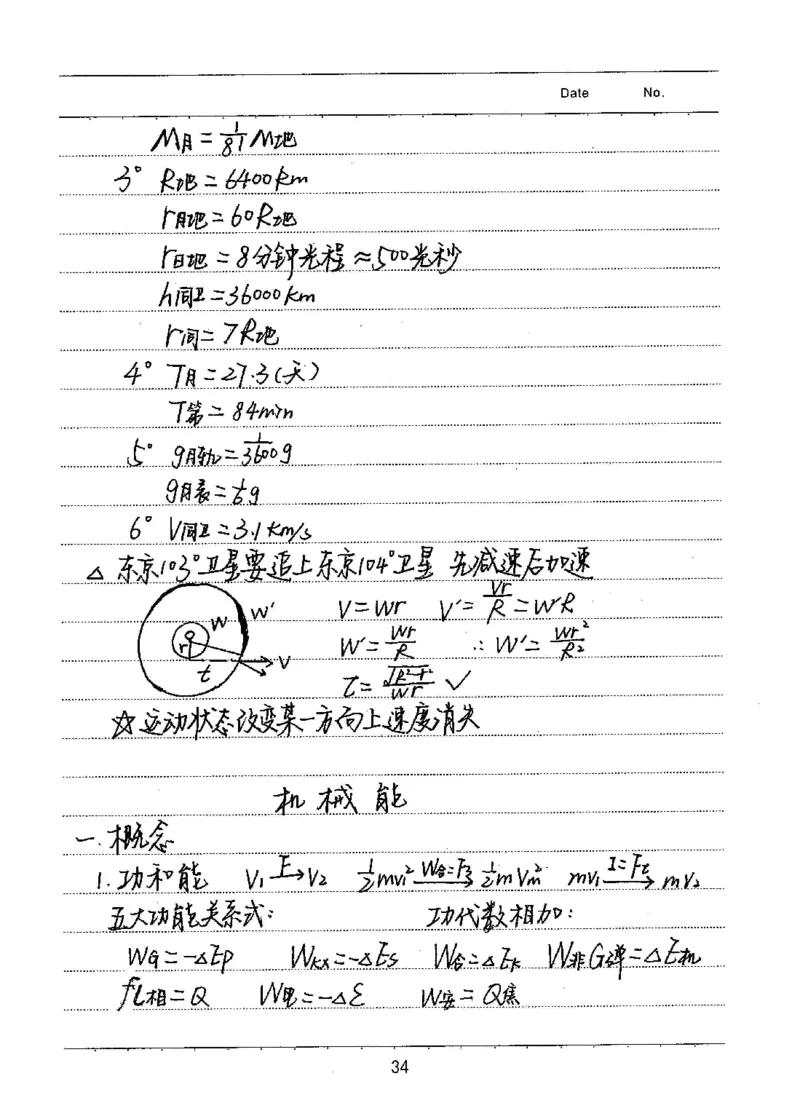 Date No.
M月 = 1/81 M地
3° R地 = 6400km
r月地 = 60R地
r日地 = 8分钟光程 ≈ 500光秒
h同卫 = 36000km
r同 = 7R地
4° T月 = 27.3(天)
T第 = 84min
5° g月轨 = 1/3600 g
g月表 = 1/6 g
6° V同卫 = 3.1km/s
△ 东京103°卫星要追上东京104°卫星 先减速后加速
W W' r t V
V = Wr V' = Vr/R = W'R
W' = Wr/R ∴ W' = Wr²/R²
t = √(R²-r²)/Wr ✓
☆ 运动状态改变某一方向上速度消失
机械能
一.概念
1.功和能 V₁ F→ V₂ ½mv₁² W合=Fs→ ½mVm² mv₁ I=Ft→ mv₂
五大功能关系式: 功代数相加:
WG = -△Ep Wkx = -△Es W合 = △Ek W非G弹 = △E机
fl相 = Q W电 = -△ε W安 = Q焦
34